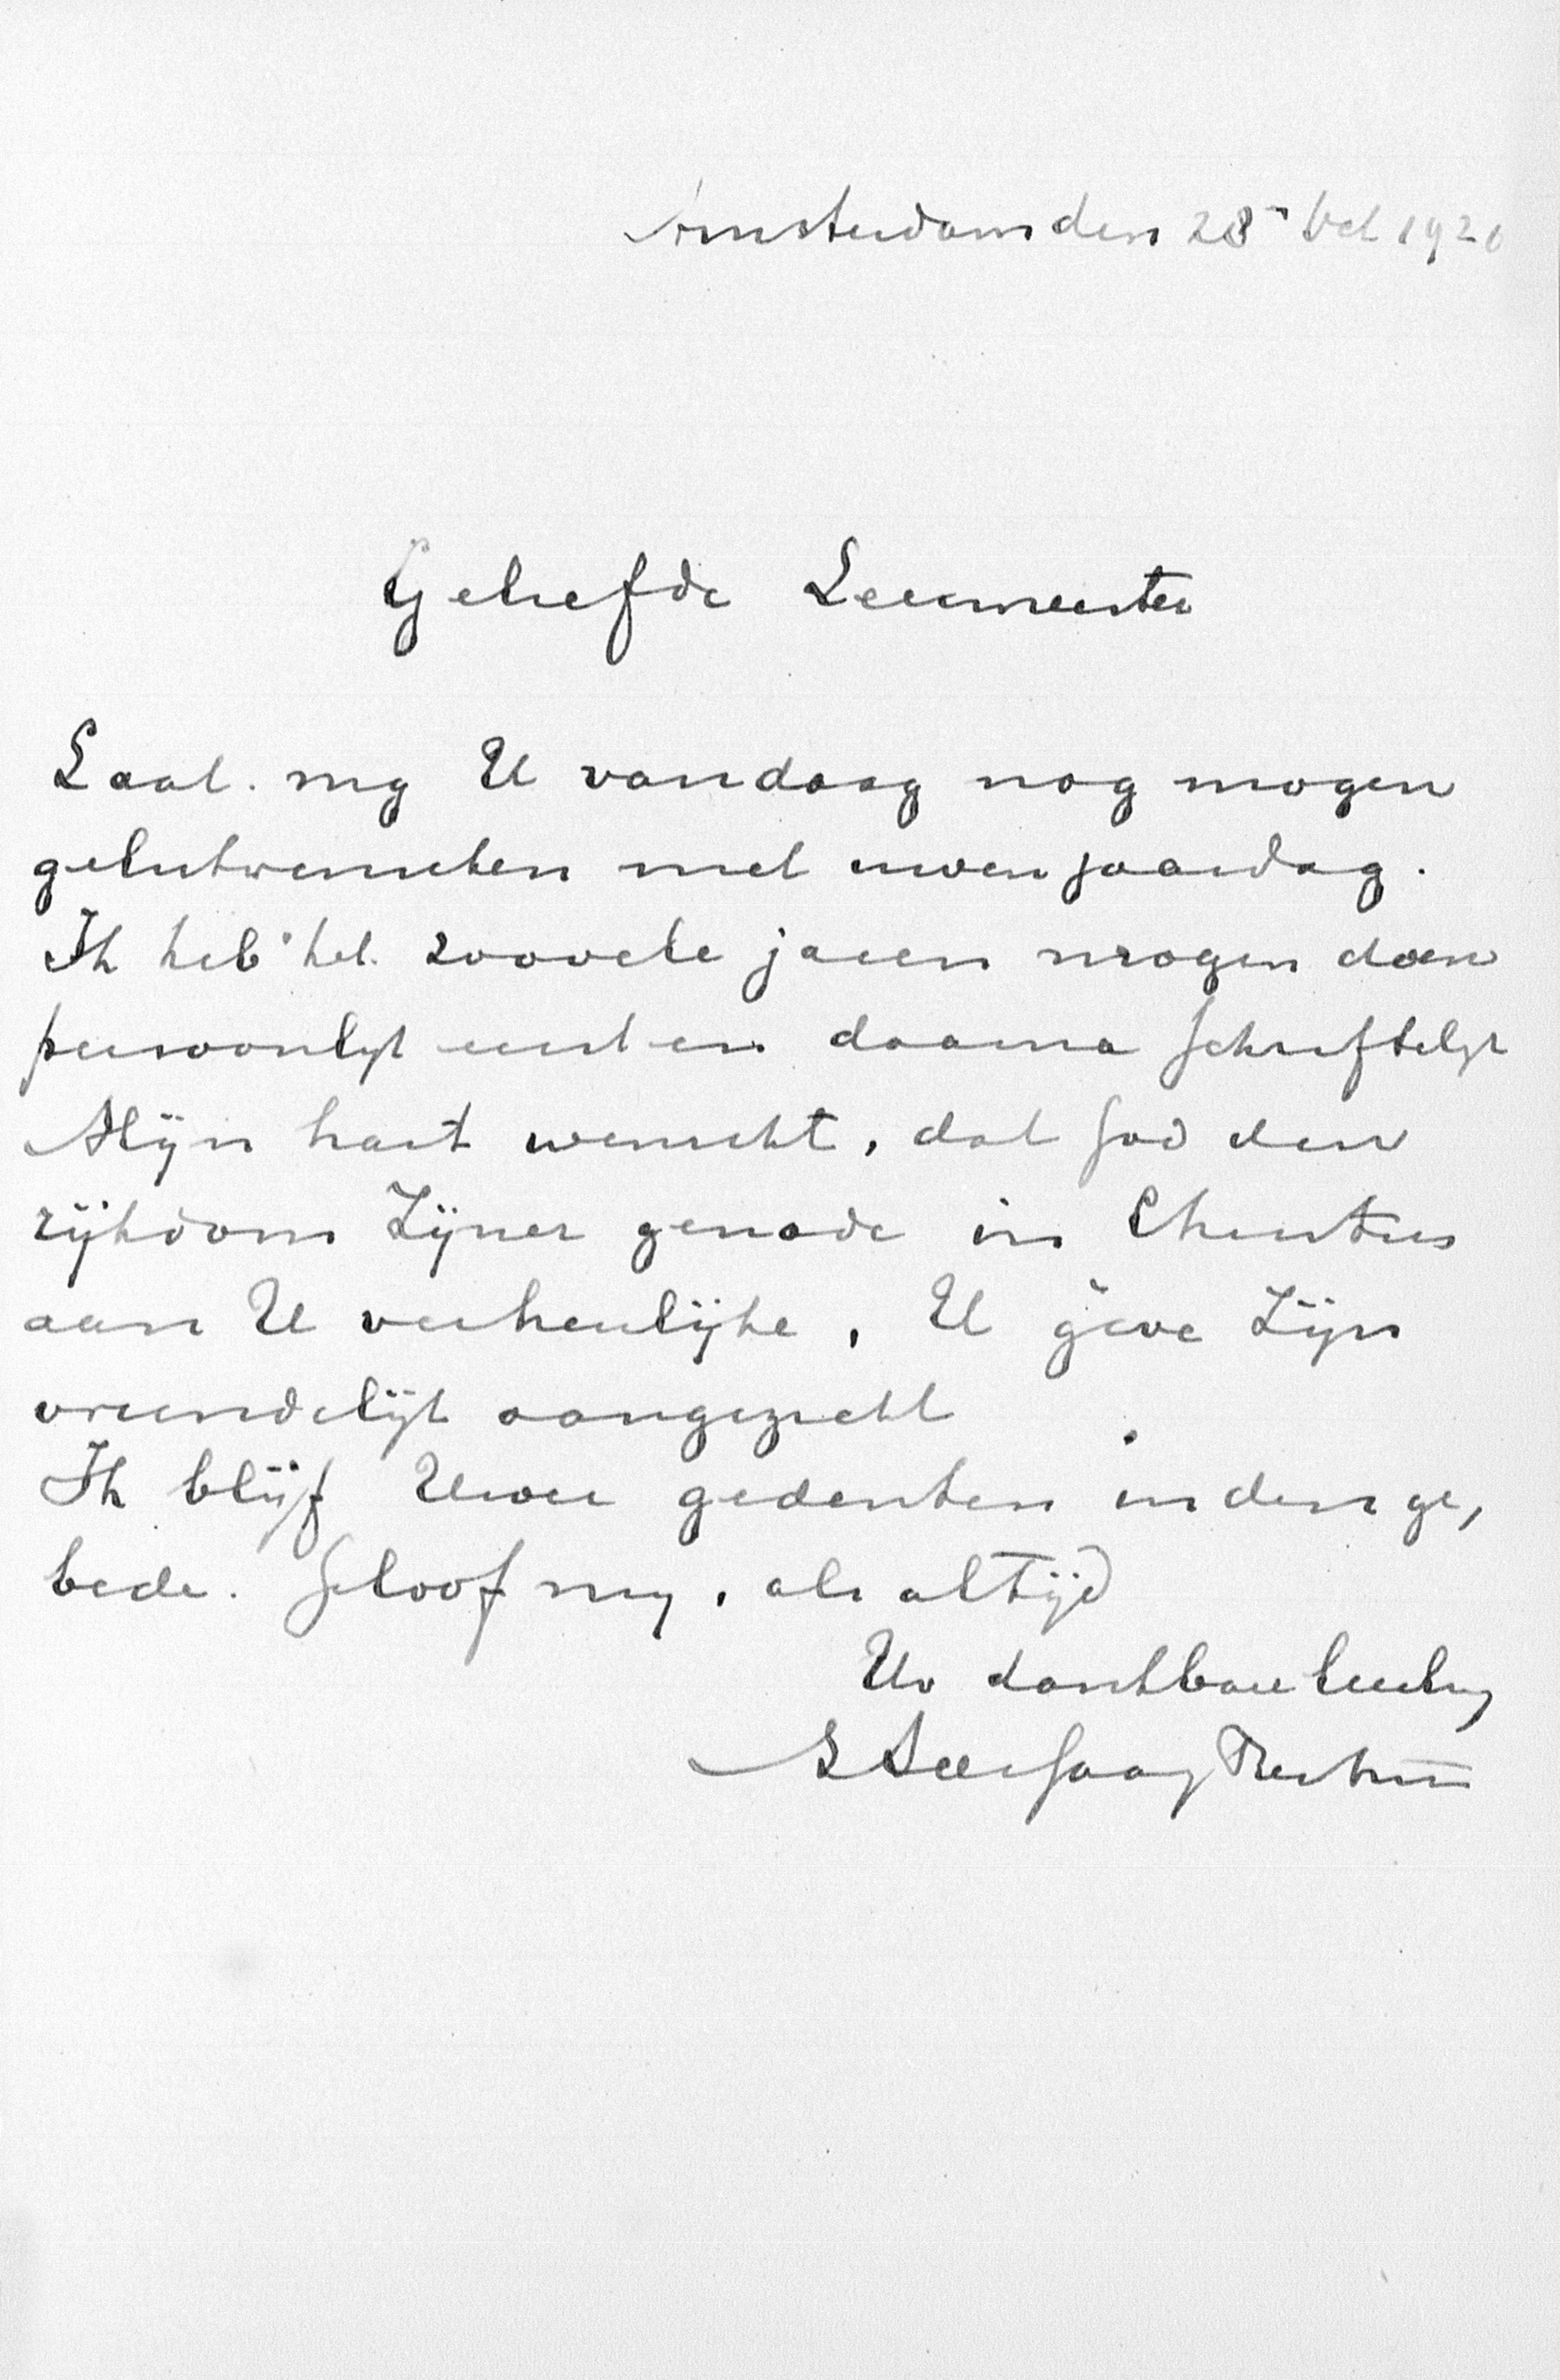 Amsterdam den 28 Oct 1920
Geliefde Leermeester
Laat mij U vandaag nog mogen
gelukwenschen met uwen jaardag.
Ik heb het zoovele jaren mogen doen
persoonlijk eerst en daarna schriftelijk
Mijn hart wenscht, dat God den
rijkdom Zijner genade in Christus
aan U verheerlijke, U geve Zijn
vriendelijk aangezicht
Ik blijf Uwer gedenken in den ge,
bede. Geloof mij, als altijd
Uw dankbare leerling